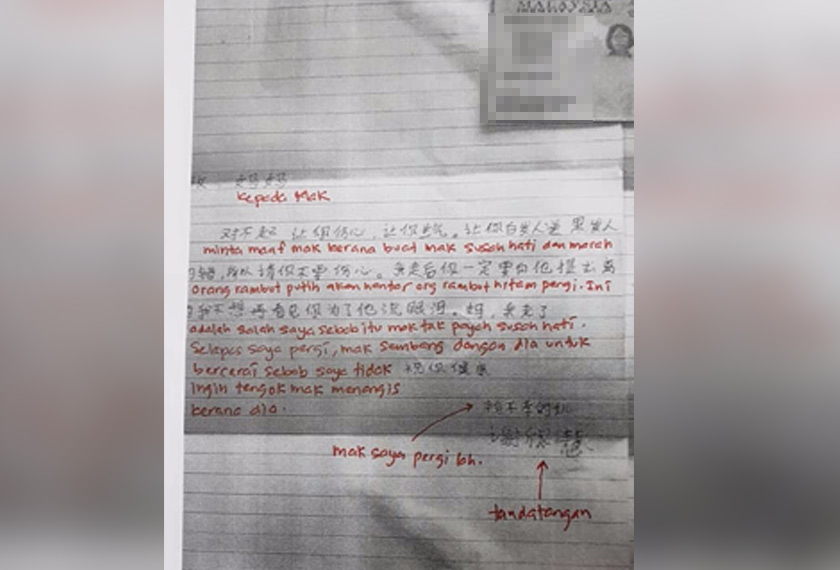 MALAYSIA
妈妈
kepada Mak
对不起 让你伤心, 让你生气。让你白发人送黑发人
minta maaf mak kerana buat mak susah hati dan marah
所以请你不要伤心。我走后你一定要向他提出离
orang rambut putih akan hantar org rambut hitam pergi. Ini
我不想再看见你为了他流眼泪。妈, 我走了
adalah salah saya sebab itu mak tak payah susah hati.
Selepas saya pergi, mak sambang dangan dia untuk
bercerai sebab saya tidak 祝你健康
ingin tengok mak menangis
kerana dia.
不孝的
mak saya pergi lah.
谢 慧
tandatangan